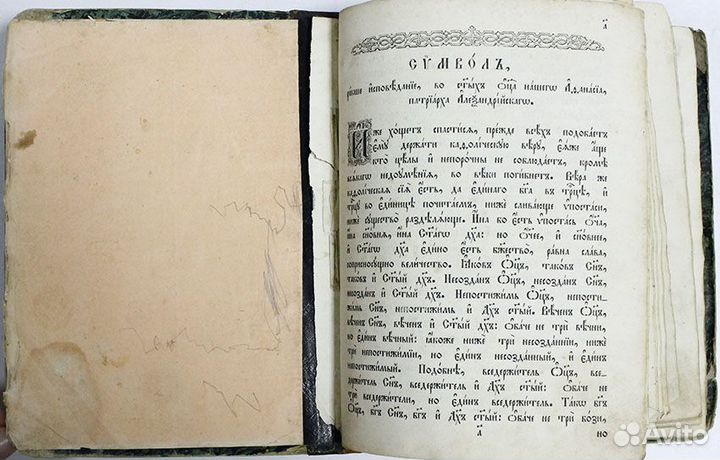 а҃
СѶМВО́ЛЪ,
и҆сповѣ́данїе, во ст҃ы́хъ ѻ҆ц҃а̀ на́шегѡ А҆ѳана́сїа,
патрїа́рха А҆леѯандрі́йскагѡ.
И҆́же хо́щетъ спасти́сѧ, пре́жде всѣ́хъ подоба́етъ
є҆мꙋ̀ держа́ти каѳоли́ческꙋю вѣ́рꙋ, є҆ѧ́же а҆́ще
кто̀ цѣ́лы и҆ непоро́чны не соблюда́етъ, кромѣ̀
всѧ́кагѡ недоꙋмѣ́нїѧ, во вѣ́ки поги́бнетъ. Вѣ́ра же
каѳоли́ческаѧ сїѧ̀ є҆́сть, да є҆ди́наго бг҃а въ трⷪ҇цѣ, и҆
трⷪ҇цꙋ во є҆ди́ницѣ почита́емъ, нижѐ слива́юще ѵ҆поста̑си,
нижѐ сꙋщество̀ раздѣлѧ́юще. И҆́на бо є҆́сть ѵ҆поста́сь ѻ҆́ч҃а,
и҆́на сн҃о́внѧ, и҆́на ст҃а́гѡ дх҃а: но ѻ҆́ч҃е, и҆ сн҃о́внее,
и҆ ст҃а́гѡ дх҃а є҆ди́но є҆́сть бж҃ество̀, ра́вна сла́ва,
соприсносꙋ́щно вели́чество. Тако́въ ѻ҆ц҃ъ, тако́въ сн҃ъ,
тако́въ и҆ ст҃ы́й дх҃ъ. Несозда́нъ ѻ҆ц҃ъ, несозда́нъ сн҃ъ,
несозда́нъ и҆ ст҃ы́й дх҃ъ. Непостижи́мь ѻ҆ц҃ъ, непости-
жи́мь сн҃ъ, непостижи́мь и҆ дх҃ъ ст҃ы́й. Вѣ́ченъ ѻ҆ц҃ъ,
вѣ́ченъ сн҃ъ, вѣ́ченъ и҆ ст҃ы́й дх҃ъ: ѻ҆ба́че не трѝ вѣ́чни,
но є҆ди́нъ вѣ́чный: та́коже нижѐ трѝ несозда́ннїи, нижѐ
трѝ непостижи́мїи, но є҆ди́нъ несозда́нный, и҆ є҆ди́нъ
непостижи́мый. Подо́бнѣ, вседержи́тель ѻ҆ц҃ъ, все-
держи́тель сн҃ъ, вседержи́тель и҆ дх҃ъ ст҃ы́й: ѻ҆ба́че не
трѝ вседержи́тели, но є҆ди́нъ вседержи́тель. Та́кѡ бг҃ъ
ѻ҆ц҃ъ, бг҃ъ сн҃ъ, бг҃ъ и҆ дх҃ъ ст҃ы́й: ѻ҆ба́че не трѝ бо́зи,
а҃ но
Avito